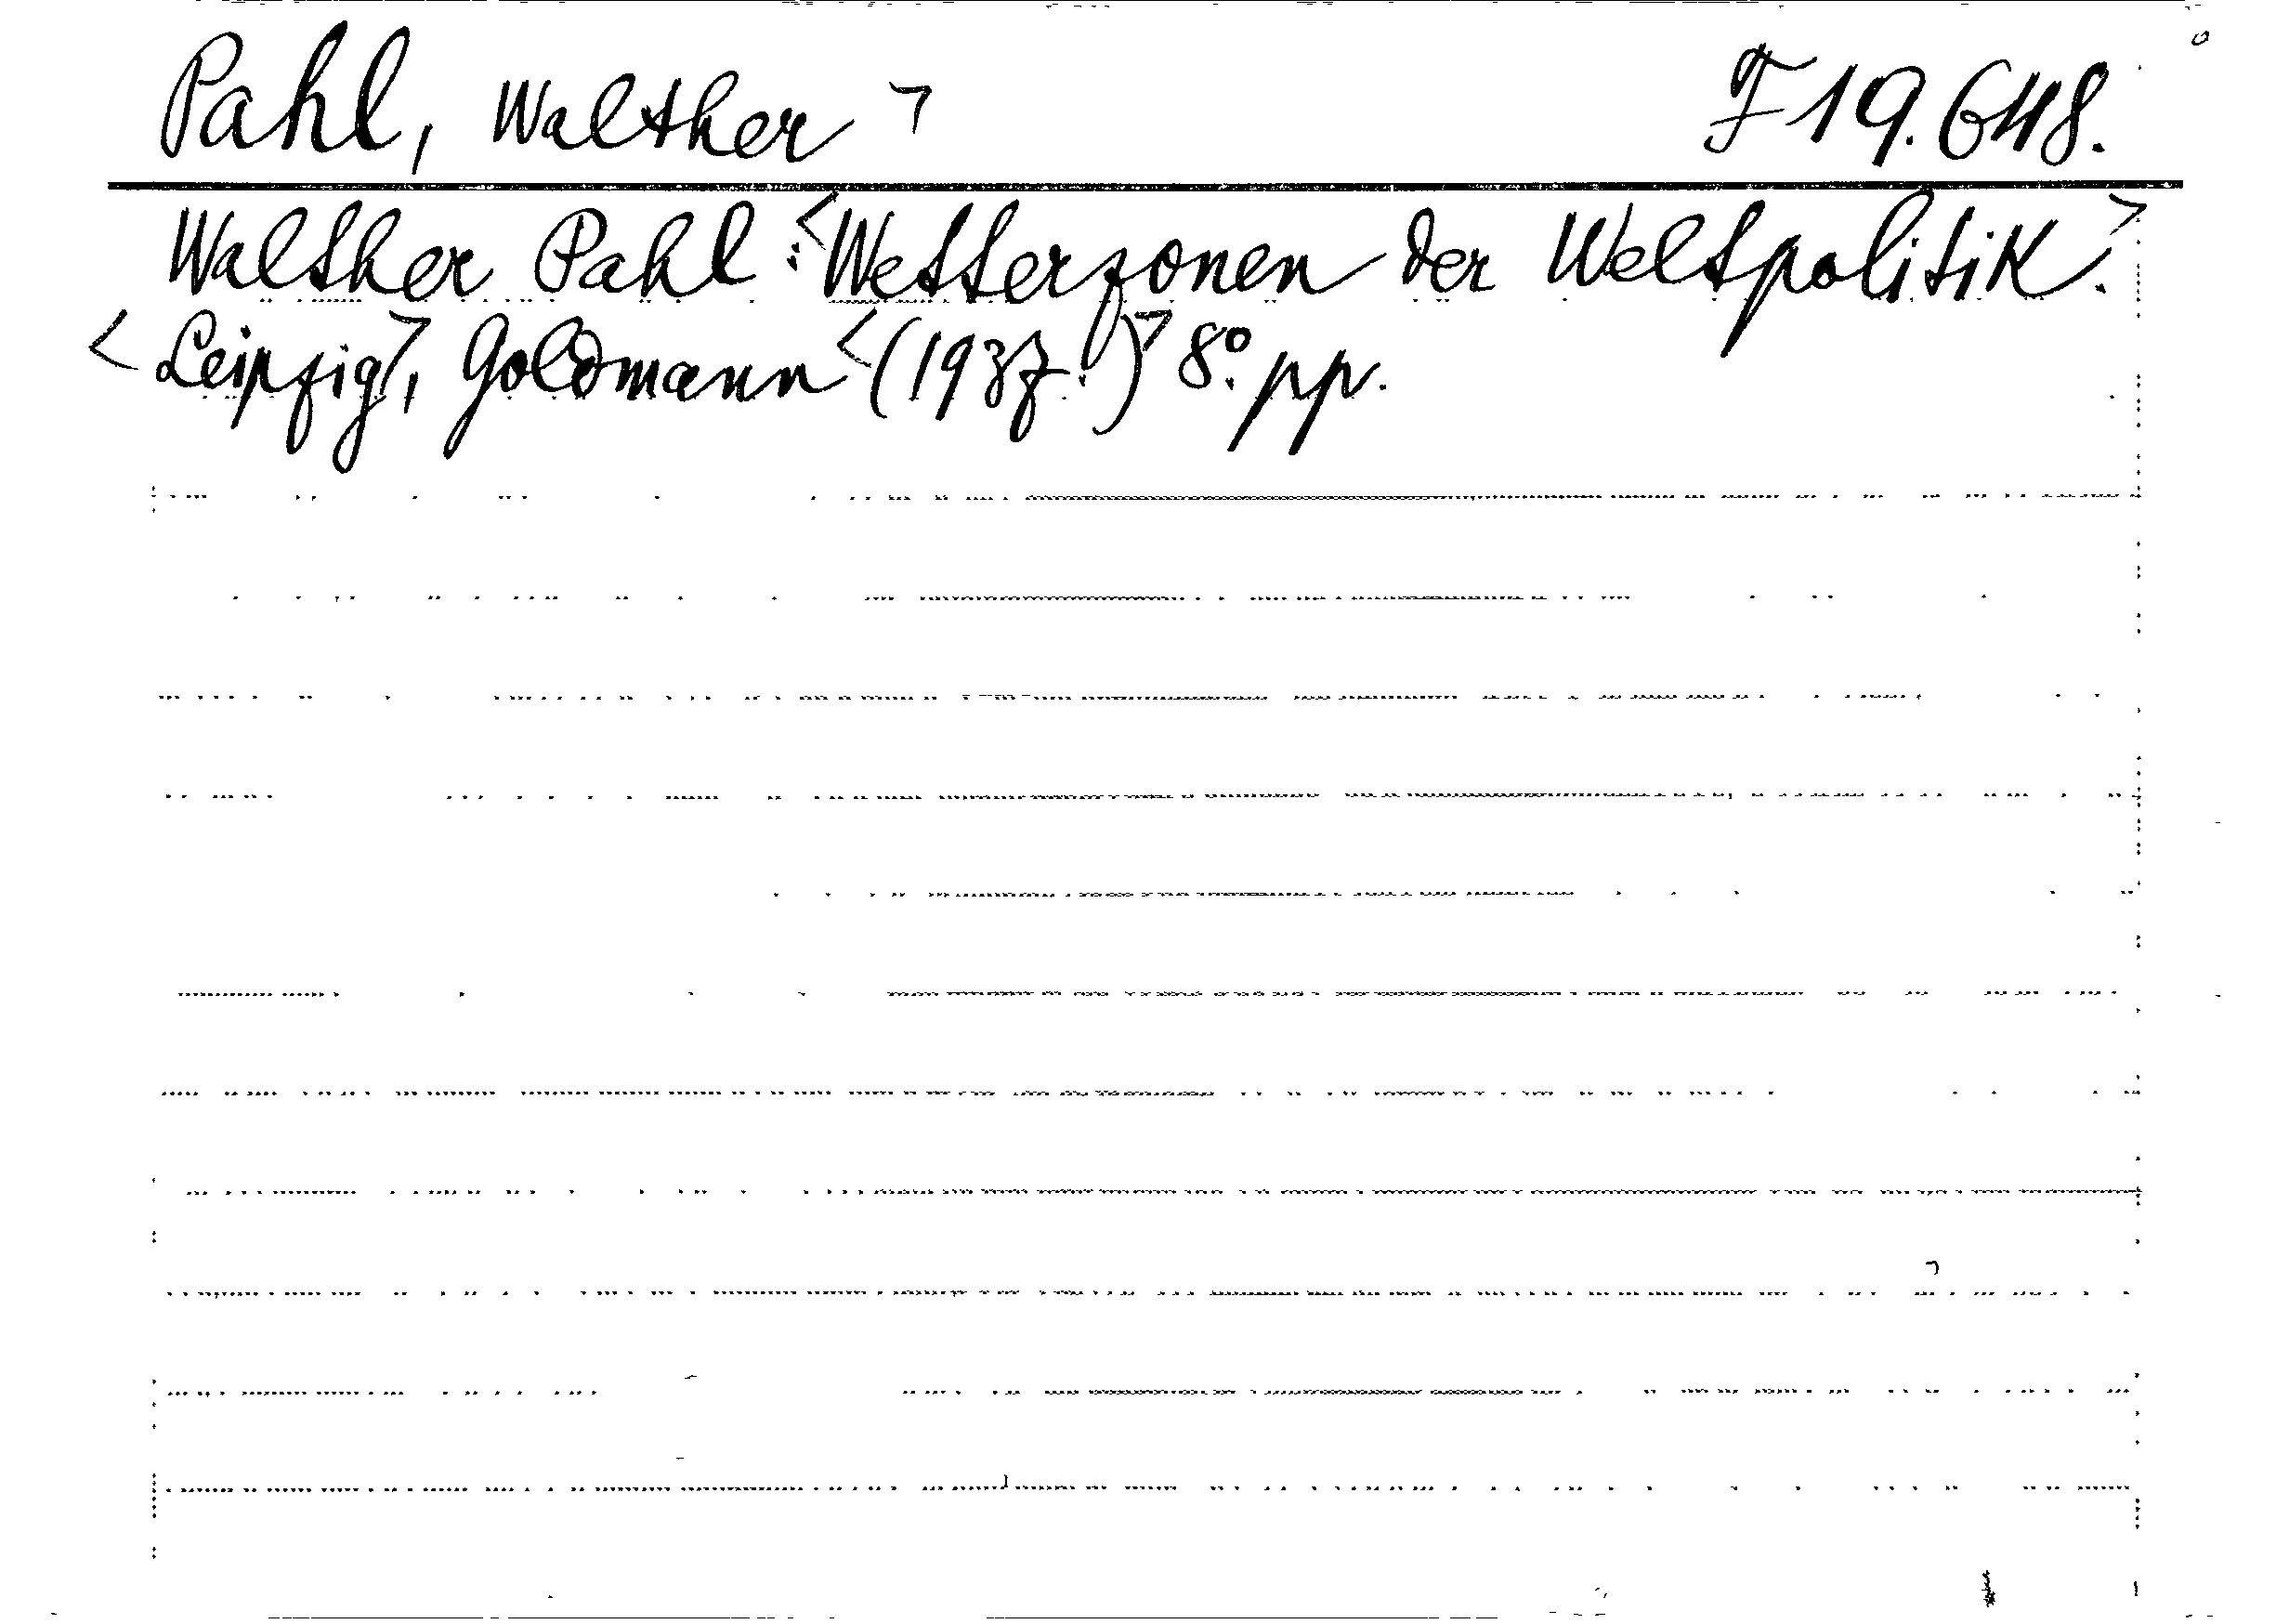 Pahl, Walther ¬ F 19.648.
Walther Pahl : <Wetterzonen der Weltpolitik.>
<Leipzig>, Goldmann <(1937.)> 8º. pp.